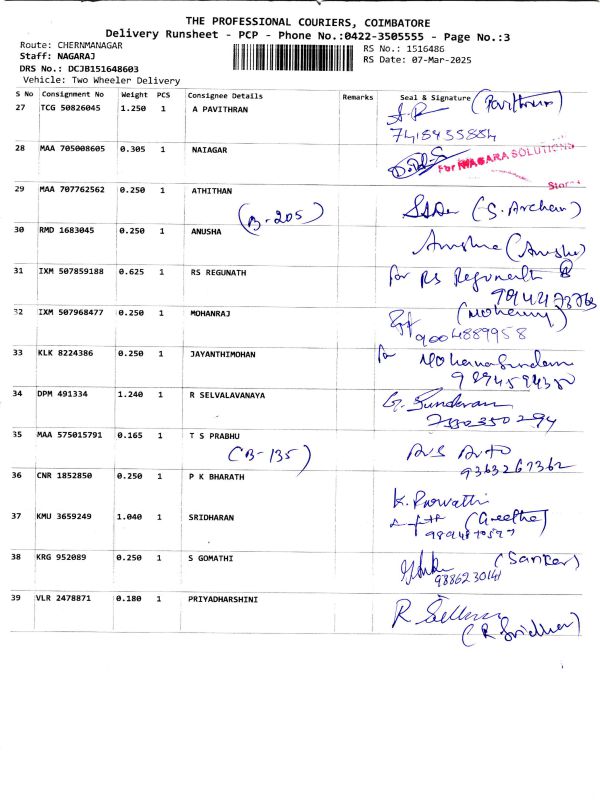 THE PROFESSIONAL COURIERS, COIMBATORE
Delivery Runsheet - PCP - Phone No.:0422-3505555 - Page No.:3
Route: CHERNMANAGAR RS No.: 1516486
Staff: NAGARAJ RS Date: 07-Mar-2025
DRS No.: DCJB151648603
Vehicle: Two Wheeler Delivery
S No Consignment No Weight PCS Consignee Details Remarks Seal & Signature
27 TCG 50826045 1.250 1 A PAVITHRAN (Pavithran)
28 MAA 705008605 0.305 1 NAIAGAR
For NIAGARA SOLUTIONS
29 MAA 707762562 0.250 1 ATHITHAN
(B-205)
30 RMD 1683045 0.250 1 ANUSHA
31 IXM 507859188 0.625 1 RS REGUNATH for RS Regunath
32 IXM 507968477 0.250 1 MOHANRAJ
9004889958
33 KLK 8224386 0.250 1 JAYANTHIMOHAN for Mohanasundaram
9894594350
34 DPM 491334 1.240 1 R SELVALAVANAYA G. Sundaram
7353350294
35 MAA 575015791 0.165 1 T S PRABHU AVS Auto
(B-135) 9363267362
36 CNR 1852850 0.250 1 P K BHARATH
K. Parvathi
37 KMU 3659249 1.040 1 SRIDHARAN (Geetha)
38 KRG 952089 0.250 1 S GOMATHI (Sanker)
9886230141
39 VLR 2478871 0.180 1 PRIYADHARSHINI
(R Sridher)